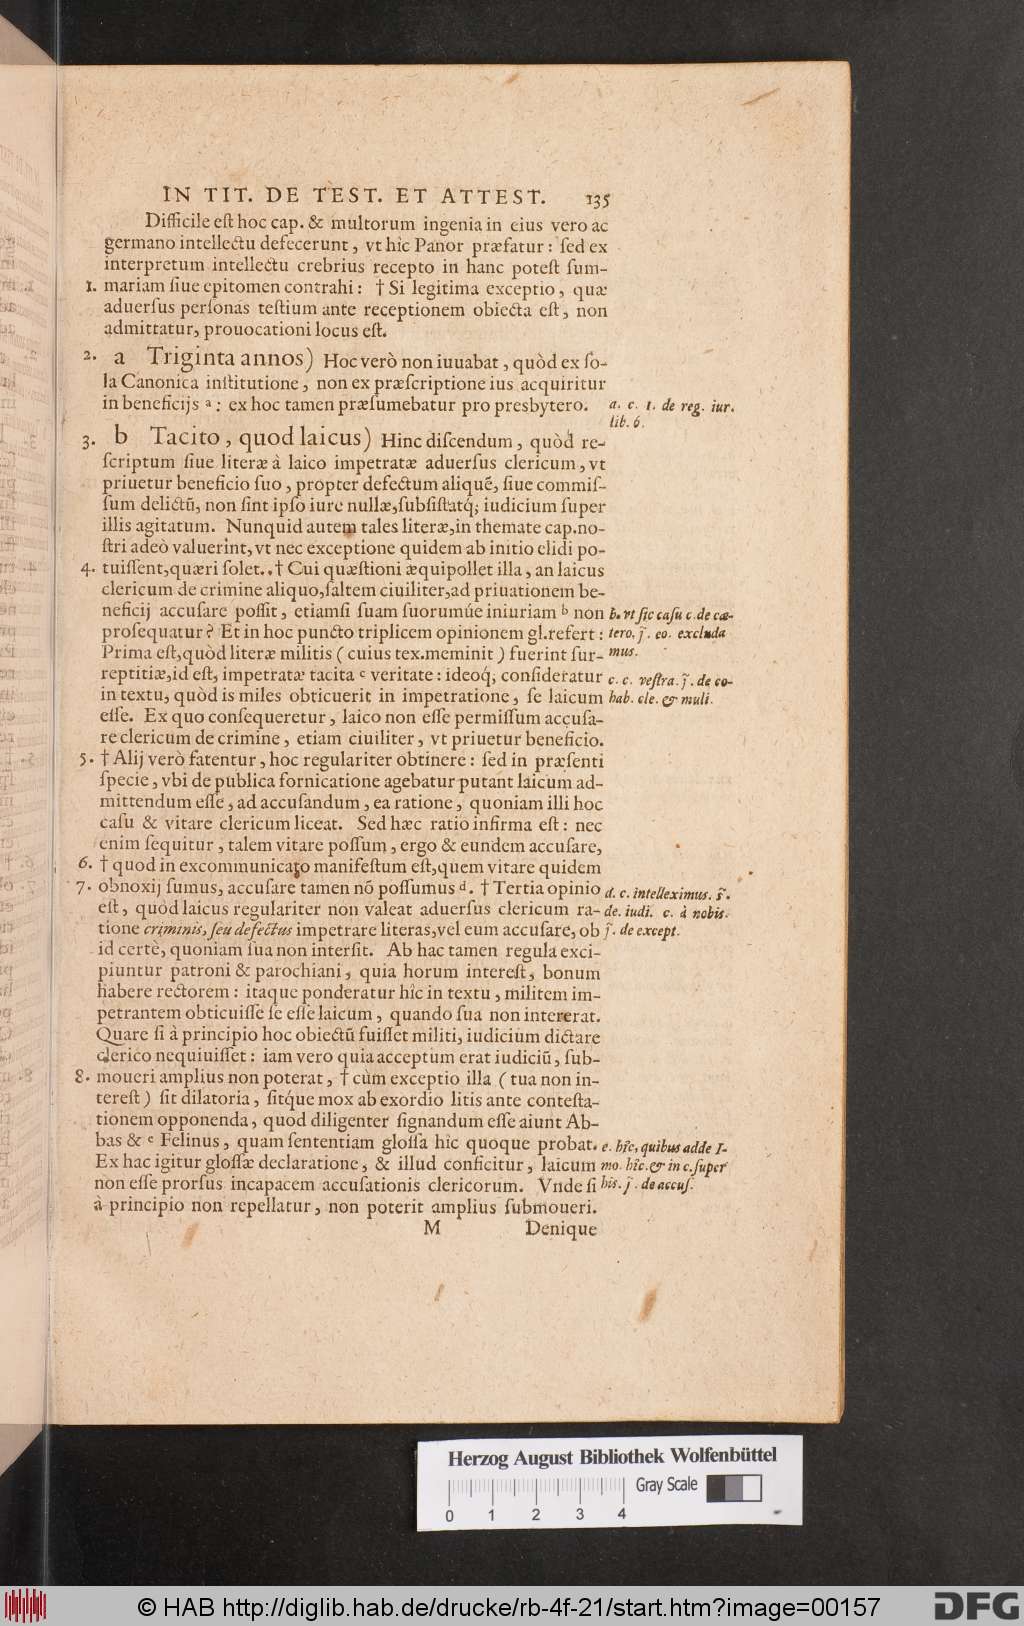 IN TIT. DE TEST. ET ATTEST. 135
Difficile eſt hoc cap. & multorum ingenia in eius vero ac
germano intellectu defecerunt, vt hîc Panor præfatur: ſed ex
interpretum intellectu crebrius recepto in hanc poteſt ſum-
1. mariam ſiue epitomen contrahi: † Si legitima exceptio, quæ
aduerſus perſonas teſtium ante receptionem obiecta eſt, non
admittatur, prouocationi locus eſt.
2. a Triginta annos) Hoc verò non iuuabat, quòd ex ſo-
la Canonica inſtitutione, non ex præſcriptione ius acquiritur
in beneficijs ᵃ: ex hoc tamen præſumebatur pro presbytero.
a. c. 1. de reg. iur.
lib. 6.
3. b Tacito, quod laicus) Hinc diſcendum, quòd re-
ſcriptum ſiue literæ à laico impetratæ aduerſus clericum, vt
priuetur beneficio ſuo, propter defectum aliquẽ, ſiue commiſ-
ſum delictũ, non ſint ipſo iure nullæ, ſubſiſtatq́; iudicium ſuper
illis agitatum. Nunquid autem tales literæ, in themate cap. no-
ſtri adeò valuerint, vt nec exceptione quidem ab initio elidi po-
4. tuiſſent, quæri ſolet.. † Cui quæſtioni æquipollet illa, an laicus
clericum de crimine aliquo, ſaltem ciuiliter, ad priuationem be-
neficij accuſare poſſit, etiamſi ſuam ſuorumúe iniuriam ᵇ non
proſequatur? Et in hoc puncto triplicem opinionem gl. refert:
Prima eſt, quòd literæ militis (cuius tex. meminit) fuerint ſur-
reptitiæ, id eſt, impetratæ tacita ᶜ veritate: ideoq́; conſideratur
in textu, quòd is miles obticuerit in impetratione, ſe laicum
eſſe. Ex quo conſequeretur, laico non eſſe permiſſum accuſa-
re clericum de crimine, etiam ciuiliter, vt priuetur beneficio.
b. vt ſic caſu c. de cæ-
tero. j̃. eo. excluda
mus.
c. c. veſtra. j̃. de co-
hab. cle. & muli.
5. † Alij verò fatentur, hoc regulariter obtinere: ſed in præſenti
ſpecie, vbi de publica fornicatione agebatur putant laicum ad-
mittendum eſſe, ad accuſandum, ea ratione, quoniam illi hoc
caſu & vitare clericum liceat. Sed hæc ratio infirma eſt: nec
enim ſequitur, talem vitare poſſum, ergo & eundem accuſare,
6. † quod in excommunicato manifeſtum eſt, quem vitare quidem
7. obnoxij ſumus, accuſare tamen nõ poſſumus ᵈ. † Tertia opinio
eſt, quòd laicus regulariter non valeat aduerſus clericum ra-
tione criminis, ſeu defectus impetrare literas, vel eum accuſare, ob
id certè, quoniam ſua non interſit. Ab hac tamen regula exci-
piuntur patroni & parochiani, quia horum intereſt, bonum
habere rectorem: itaque ponderatur hîc in textu, militem im-
petrantem obticuiſſe ſe eſſe laicum, quando ſua non intererat.
Quare ſi à principio hoc obiectũ fuiſſet militi, iudicium dictare
clerico nequiuiſſet: iam vero quia acceptum erat iudiciũ, ſub-
8. moueri amplius non poterat, † cùm exceptio illa (tua non in-
tereſt) ſit dilatoria, ſitq́ue mox ab exordio litis ante conteſta-
tionem opponenda, quod diligenter ſignandum eſſe aiunt Ab-
bas & ᵉ Felinus, quam ſententiam gloſſa hîc quoque probat.
Ex hac igitur gloſſæ declaratione, & illud conficitur, laicum
non eſſe prorſus incapacem accuſationis clericorum. Vnde ſi
à principio non repellatur, non poterit amplius ſubmoueri.
d. c. intelleximus. s̃.
de. iudi. c. à nobis.
j̃. de except.
e. hîc, quibus adde I-
mo. hîc. & in c. ſuper
his. j̃. de accuſ.
M Denique
Herzog August Bibliothek Wolfenbüttel
Gray Scale
0 1 2 3 4
© HAB http://diglib.hab.de/drucke/rb-4f-21/start.htm?image=00157
DFG